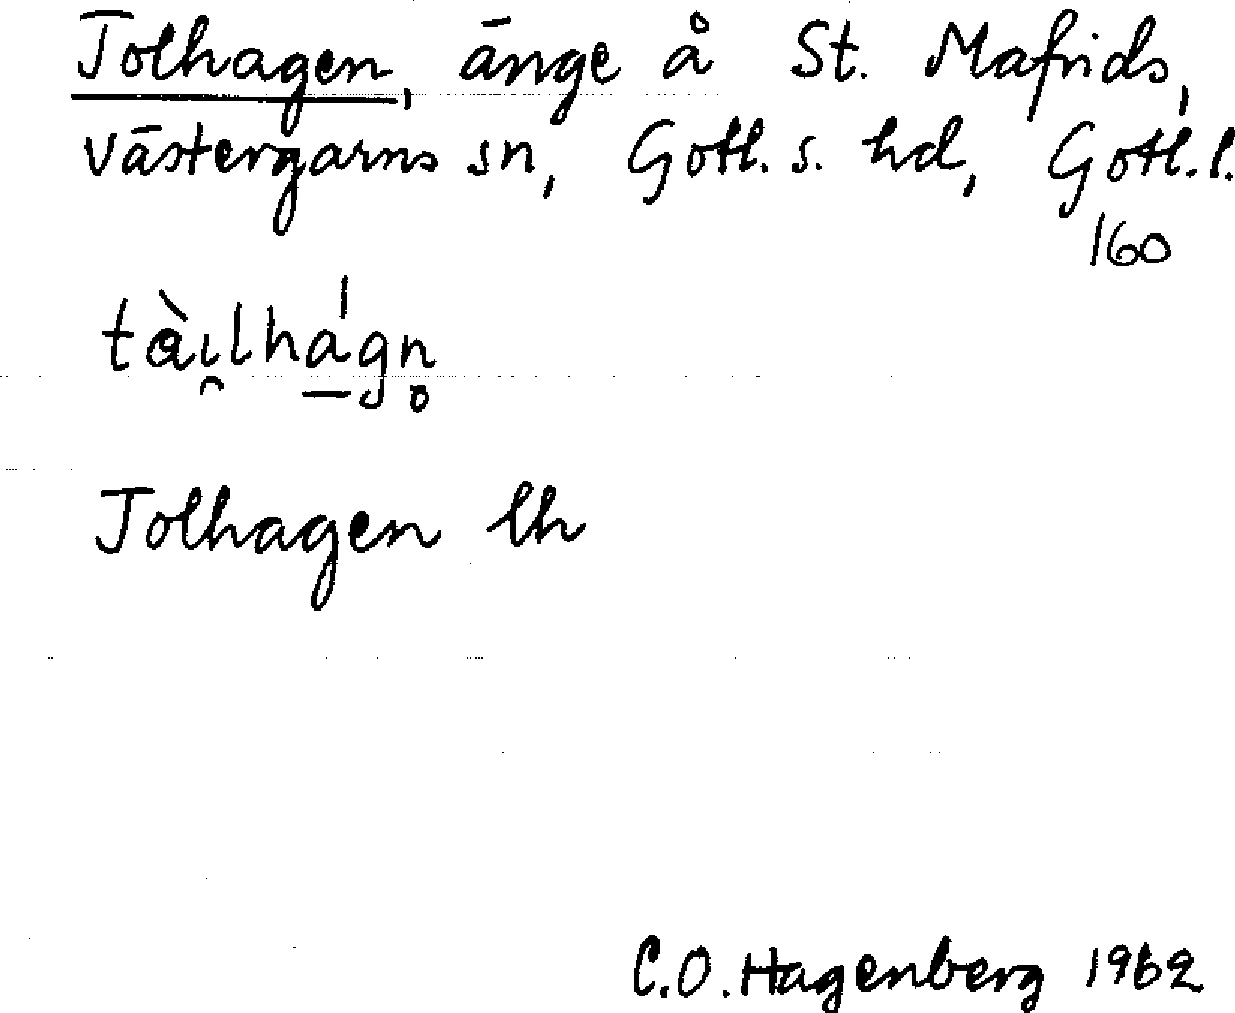 Tolhagen, änge å St. Mafrids,
Västergarns sn, Gotl. s. hd, Gotl. l.
160
tàı̯lha̠ˈgn̥
Tolhagen lh
C.O. Hagenberg 1962